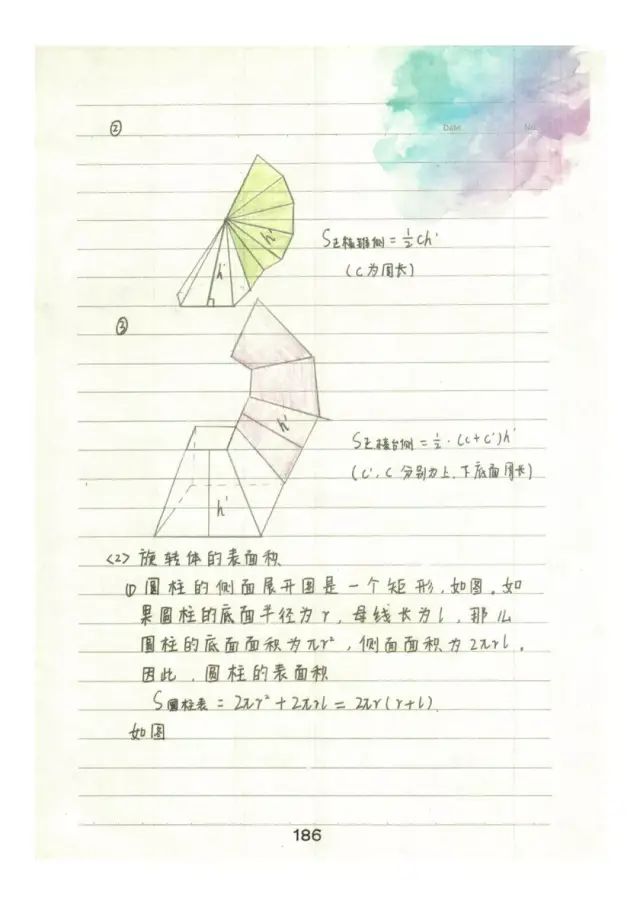 Date No.
②
h'
h'
S正棱锥侧 = 1/2 ch'
(c为周长)
③
h'
S正棱台侧 = 1/2 · (c+c')h'
(c',c 分别为上、下底面周长)
h'
<2> 旋转体的表面积
(1) 圆柱的侧面展开图是一个矩形,如图。如
果圆柱的底面半径为r,母线长为l,那么
圆柱的底面面积为πr²,侧面面积为2πrl。
因此,圆柱的表面积
S圆柱表 = 2πr²+2πrl = 2πr(r+l).
如图
186